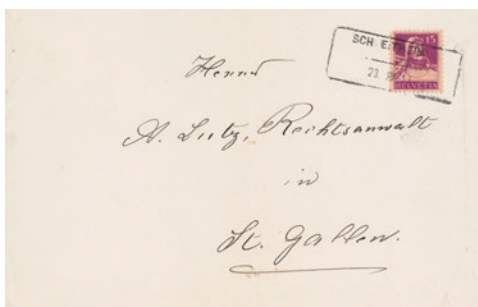 15
HELVETIA
23.
Herrn
A. Lutz, Rechtsanwalt
in
St. Gallen.